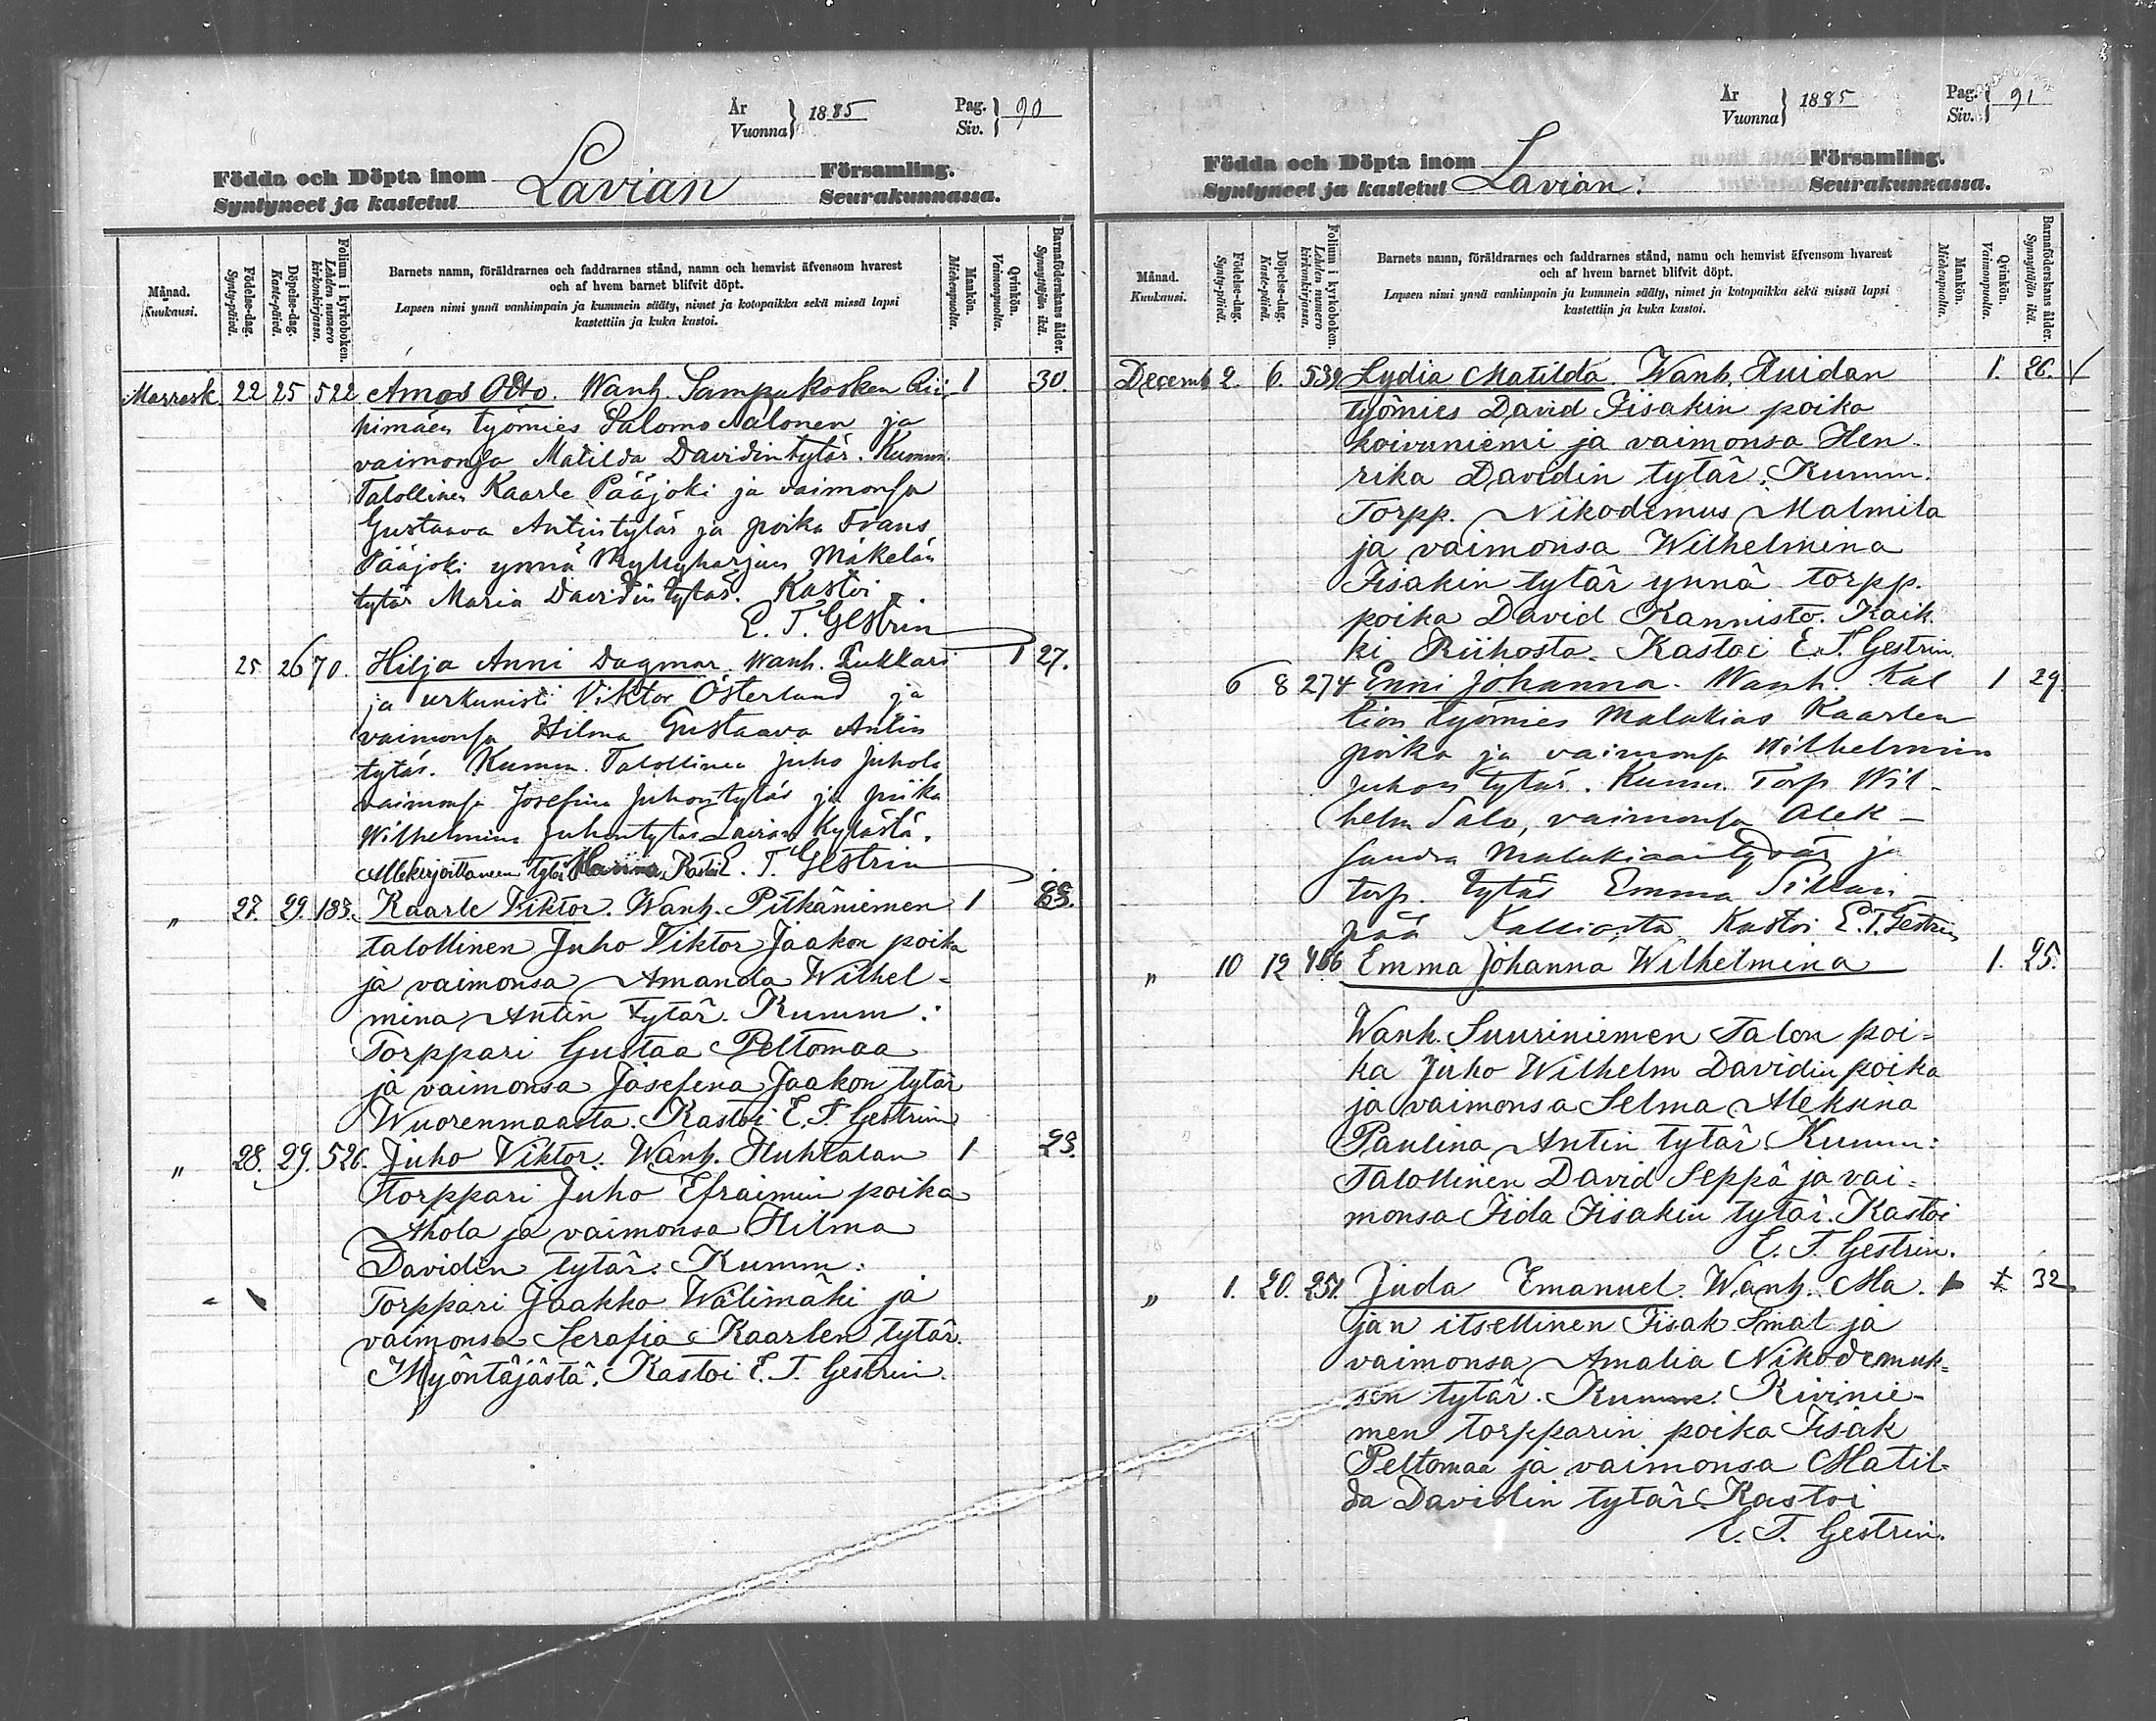 År
Vuonna } 1885 Pag.
Siv. } 90
Födda och Döpta inom Lavian Församling.
Syntyneet ja kastetut Seurakunnassa.
Månad.
Kuukausi.
Födelse-dag.
Synty-päivä.
Döpelse-dag.
Kaste-päivä.
Folium i kyrkoboken.
Lehden numero kirkonkirjassa.
Barnets namn, föräldrarnes och faddrarnes stånd, namn och hemvist äfvensom hvarest
och af hvem barnet blifvit döpt.
Lapsen nimi ynnä vanhimpain ja kummein sääty, nimet ja kotopaikka sekä missä lapsi
kastettiin ja kuka kastoi.
Mankön.
Miehenpuolta.
Qvinkön.
Vaimonpuolta.
Barnaföderskans ålder.
Synnyttäjän ikä.
Marrask. 22 25 522 Amos Otto. Wanh. Sampakosken Rii- 1 30.
himäen työmies Salomo Salonen ja
vaimonsa Matilda Davidintytär. Kumm.
Talollinen Kaarle Pääjoki ja vaimonsa
Gustaava Antintytär ja poika Frans
Pääjoki ynnä Myllyharjun Mäkelän
tytär Maria Davidintytär. Kastoi
E. T. Gestrin
25 26 70. Hilja Anni Dagmar. Wanh. Lukkari 1 27.
ja urkunisti Viktor Österlund ja
vaimonsa Hilma Gustaava Antin
tytär. Kumm. Talollinen Juho Juhola
vaimonsa Josefina Juhontytär ja piika
Wilhelmina Juhontytär Lavian kylästä.
Allekirjoittaneen tytär Kastoi E. T. Gestrin
" 27. 29. 183. Kaarle Viktor. Wanh. Pitkäniemen 1
talollinen Juho Viktor Jaakon poika
ja vaimonsa Amanda Wilhel-
mina Antin tytär. Kumm:
Torppari Gustaa Peltomaa
ja vaimonsa Josefina Jaakon tytär
Wuorenmaasta. Kastoi E. T. Gestrin
" 28. 29. 526. Juho Viktor. Wanh. Huhtalan 1 23.
torppari Juho Efraimin poika
Ahola ja vaimonsa Hilma
Davidin tytär. Kumm:
Torppari Jaakko Wälimäki ja
vaimonsa Serafia Kaarlen tytär.
Myöntäjästä. Kastoi E. T. Gestrin.
År
Vuonna } 1885 Pag.
Siv. } 91
Födda och Döpta inom Lavian. Församling.
Syntyneet ja kastetut Seurakunnassa.
Månad.
Kuukausi.
Födelse-dag.
Synty-päivä.
Döpelse-dag.
Kaste-päivä.
Folium i kyrkoboken.
Lehden numero kirkonkirjassa.
Barnets namn, föräldrarnes och faddrarnes stånd, namn och hemvist äfvensom hvarest
och af hvem barnet blifvit döpt.
Lapsen nimi ynnä vanhimpain ja kummein sääty, nimet ja kotopaikka sekä missä lapsi
kastettiin ja kuka kastoi.
Mankön.
Miehenpuolta.
Qvinkön.
Vaimonpuolta.
Barnaföderskans ålder.
Synnyttäjän ikä.
Decemb. 2. 6. 539 Lydia Matilda. Wanh. Huidan 1. 26. V
työmies David Iisakin poika
Koivuniemi ja vaimonsa Hen-
rika Davidin tytär. Kumm.
Torpp. Nikodemus Malmila
ja vaimonsa Wilhelmina
Iisakin tytär ynnä torpp.
poika David Kannisto. Kaik-
ki Riihosta. Kastoi E. T. Gestrin.
6 8 274 Enni Johanna. Wanh. Kal 1 29.
lion työmies Malakias Kaarlen
poika ja vaimonsa Wilhelmin
Juhon tytär. Kumm. Torp. Wil-
helm Salo, vaimonsa Alek-
sandra Malakiaantytär ja
torp. tytär Emma
pää Kalliosta. Kastoi E. T. Gestrin
" 10 12 466 Emma Johanna Wilhelmina 1. 25.
Wanh. Suuriniemen Talon poi-
ka Juho Wilhelm Davidin poika
ja vaimonsa Selma Aleksina
Paulina Antin tytär. Kumm:
Talollinen David Seppä ja vai-
monsa Iida Iisakin tytär. Kastoi
E. T. Gestrin.
" 1. 20. 251. Juda Emanuel. Wanh. Ma- 1 32
jan itsellinen Iisak Smal ja
vaimonsa Amalia Nikodemuk-
sen tytär. Kumm. Kivinie-
men torpparin poika Iisak
Peltomaa ja vaimonsa Matil-
da Davidin tytär. Kastoi
E. T. Gestrin.